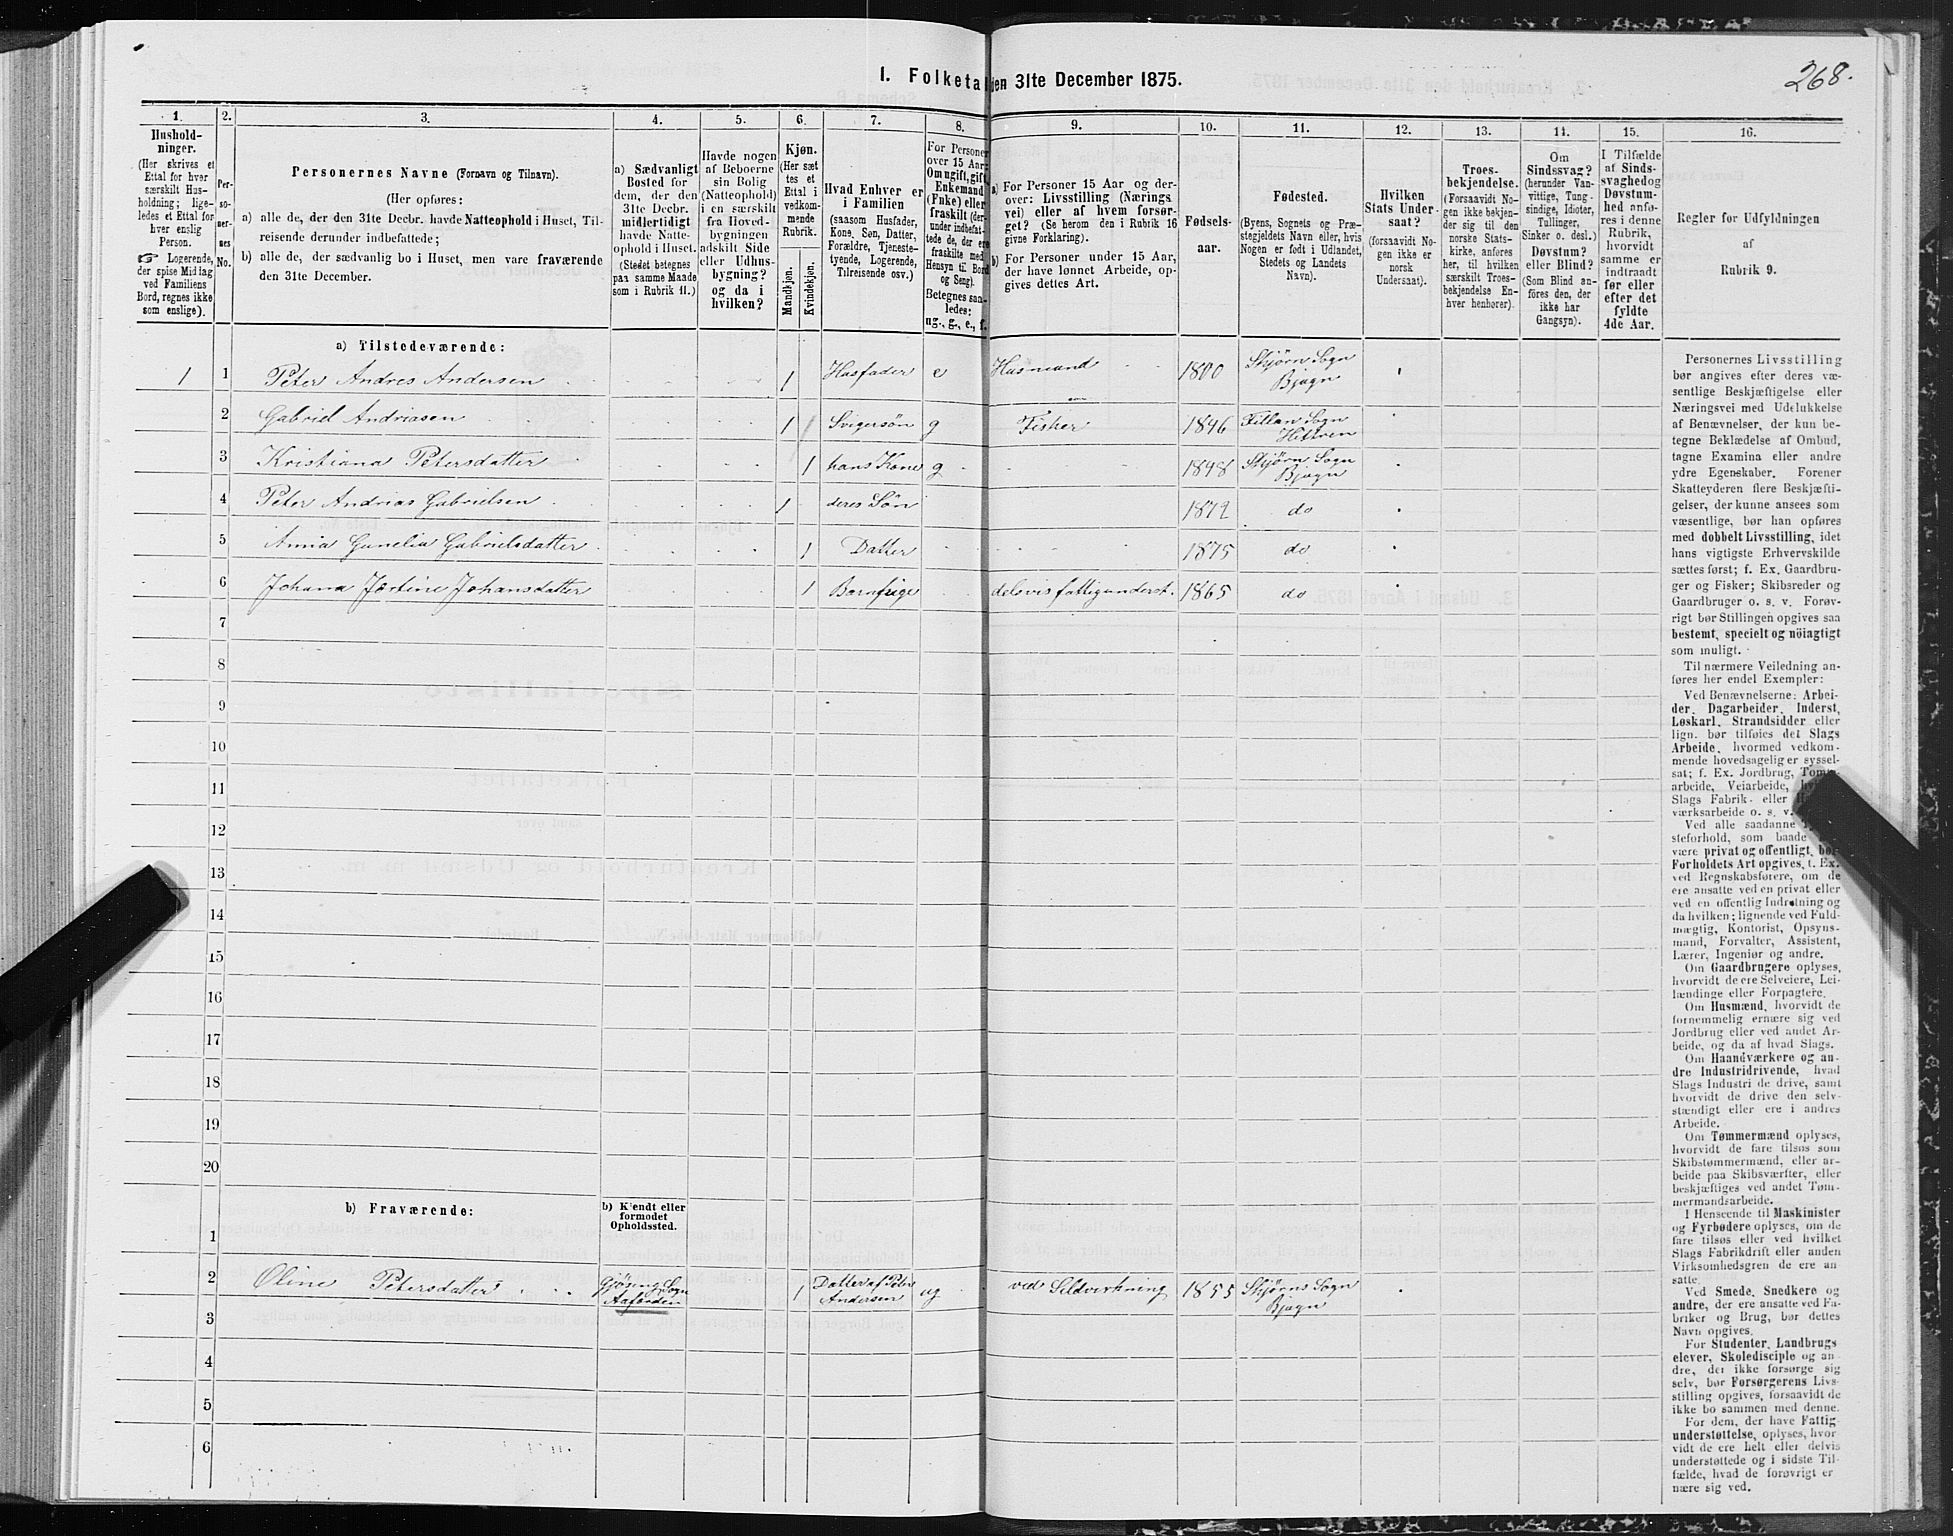 268.
1. Folketal den 31te December 1875.
1. 2. 3. 4. 5. 6. 7. 8. 9. 10. 11. 12. 13. 14. 15. 16.
Hushold-
ninger.
(Her skrives et
Ettal for hver
særskilt Hus-
holdning; lige-
ledes et Ettal for
hver enslig
Person.
☞ Logerende,
der spise Middag
ved Familiens
Bord, regnes ikke
som enslige).
Per-
so-
ner-
nes
No.
Personernes Navne (Fornavn og Tilnavn).
(Her opføres:
a) alle de, der den 31te Decbr. havde Natteophold i Huset, Til-
reisende derunder indbefattede;
b) alle de, der sædvanlig bo i Huset, men vare fraværende
den 31te December.
a) Sædvanligt
Bosted for
dem, der den
31te Decbr.
midlertidigt
havde Natte-
ophold i Huset.
(Stedet betegnes
paa samme Maade
som i Rubrik 11.)
Havde nogen
af Beboerne
sin Bolig
(Natteophold)
i en særskilt
fra Hoved-
bygningen
adskilt Side
eller Udhus-
bygning?
og da i
hvilken?
Kjøn.
(Her sæt
tes et
Ettal i
vedkom-
mende
Rubrik.
Mandkjøn.
Kvindekjøn.
Hvad Enhver er
i Familien
(saasom Husfader,
Kone, Søn, Datter,
Forældre, Tjeneste-
tyende, Logerende,
Tilreisende osv.)
For Personer
over 15 Aar:
Om ugift, gift,
Enkemand
(Enke) eller
fraskilt (der-
under indbefat-
tede de, der ere
fraskilte med
Hensyn til Bord
og Seng).
Betegnes saa-
ledes:
ug., g., e., f.
a) For Personer 15 Aar og der-
over: Livsstilling (Nærings
vei) eller af hvem forsør-
get? (Se herom den i Rubrik 16
givne Forklaring).
b) For Personer under 15 Aar,
der have lønnet Arbeide, op-
gives dettes Art.
Fødsels-
aar.
Fødested.
(Byens, Sognets og Præ-
stegjeldets Navn eller, hvis
Nogen er født i Udlandet,
Stedets og Landets
Navn).
Hvilken
Stats Under-
saat?
(forsaavidt No-
gen ikke er
norsk
Undersaat).
Troes-
bekjendelse.
(Forsaavidt No-
gen ikke bekjen-
der sig til den
norske Stats-
kirke, anføres
her, til hvilken
særskilt Troes-
bekjendelse En-
hver henhører).
Om
Sindssvag?
(herunder Van-
vittige, Tung-
sindige, Idioter,
Tullinger,
Sinker o. desl.)
Døvstum?
eller Blind?
(Som Blind an-
føres den, der
ikke har
Gangsyn).
I Tilfælde
af Sinds-
svaghed og
Døvstum-
hed anfø-
res i denne
Rubrik,
hvorvidt
samme er
indtraadt
før eller
efter det
fyldte
4de Aar.
Regler for Udfyldningen
af
Rubrik 9.
a) Tilstedeværende:
1 1 Peter Andres Andersen 1 Husfader e Husmand 1800 Skjørn Sogn Bjugn
2 Gabriel Andriasen 1 Svigersøn g Fisker 1846 Fillan Sogn Hitteren
3 Kristiana Petersdatter 1 hans Kone g 1848 Skjørn Sogn Bjugn
4 Peter Andrias Gabrielsen 1 deres Søn 1872 do
5 Anna Gunelia Gabrielsdatter 1 Datter 1875 do
6 Johana Jørtine Johansdatter 1 Barnfrige delsvis fattigunderst. 1865 do
7
8
9
10
11
12
13
14
15
16
17
18
19
20
b) Fraværende:
b) Kjendt eller
formodet
Opholdssted.
1
2 Oline Petersdatter Gjøsing Sogn Aafjorden 1 Datter af Peter Andersen ug ved Sildvirkning 1855 Skjørns Sogn Bjugn
3
4
5
6
Personernes Livsstilling
bør angives efter deres væ-
sentlige Beskjæftigelse eller
Næringsvei med Udelukkelse
af Benævnelser, der kun be-
tegne Beklædelse af Ombud,
tagne Examina eller andre
ydre Egenskaber. Forener
Skatteyderen flere Beskjæfti-
gelser, der kunne ansees som
væsentlige, bør han opføres
med dobbelt Livsstilling, idet
hans vigtigste Erhvervskilde
sættes først; f. Ex. Gaardbru-
ger og Fisker; Skibsreder og
Gaardbruger o. s. v. Forøv-
rigt bør Stillingen opgives saa
bestemt, specielt og nöiagtigt
som muligt.
Til nærmere Veiledning an-
føres her endel Exempler:
Ved Benævnelserne: Arbei-
der, Dagarbeider, Inderst,
Løskarl, Strandsidder eller
lign. bør tilføies det Slags
Arbeide, hvormed vedkom-
mende hovedsagelig er syssel-
sat; f. Ex. Jordbrug,
arbeide, Veiarbeide,
Slags Fabrik- eller
værksarbeide o. s. v.
Ved alle saadanne
steforhold, som baade
være privat og offentligt, bør
Forholdets Art opgives, f. Ex.
ved Regnskabsførere, om de
ere ansatte ved en privat eller
ved en offentlig Indretning og
da hvilken; lignende ved Fuld-
mægtig, Kontorist, Opsyns-
mand, Forvalter, Assistent,
Lærer, Ingeniør og andre.
Om Gaardbrugere oplyses,
hvorvidt de ere Selveiere, Lei-
lændinge eller Forpagtere.
Om Husmænd, hvorvidt de
fornemmelig ernære sig ved
Jordbrug eller ved andet Ar-
beide, og da af hvad Slags.
Om Haandværkere og an-
dre Industridrivende, hvad
Slags Industri de drive, samt
hvorvidt de drive den selv-
stændigt eller ere i andres
Arbeide.
Om Tømmermænd oplyses,
hvorvidt de fare tilsøs som
Skibstømmermænd, eller ar-
beide paa Skibsværfter, eller
beskjæftiges ved andet Tøm-
mermandsarbeide.
I Henseende til Maskinister
og Fyrbødere oplyses, om de
fare tilsøs eller ved hvilket
Slags Fabrikdrift eller anden
Virksomhedsgren de ere an-
satte.
Ved Smede, Snedkere og
andre, der ere ansatte ved Fa-
briker og Brug, bør dettes
Navn opgives.
For Studenter, Landbrugs
elever, Skoledisciple og an-
dre, der ikke forsørge sig
selv, bør Forsørgerens Livs-
stilling opgives, forsaavidt de
ikke bo sammen med denne.
For dem, der have Fattig-
understøttelse, oplyses, hvor
vidt de ere helt eller delvis
understøttede og i sidste Til-
fælde, hvad de forøvrigt er
nære sig ved.